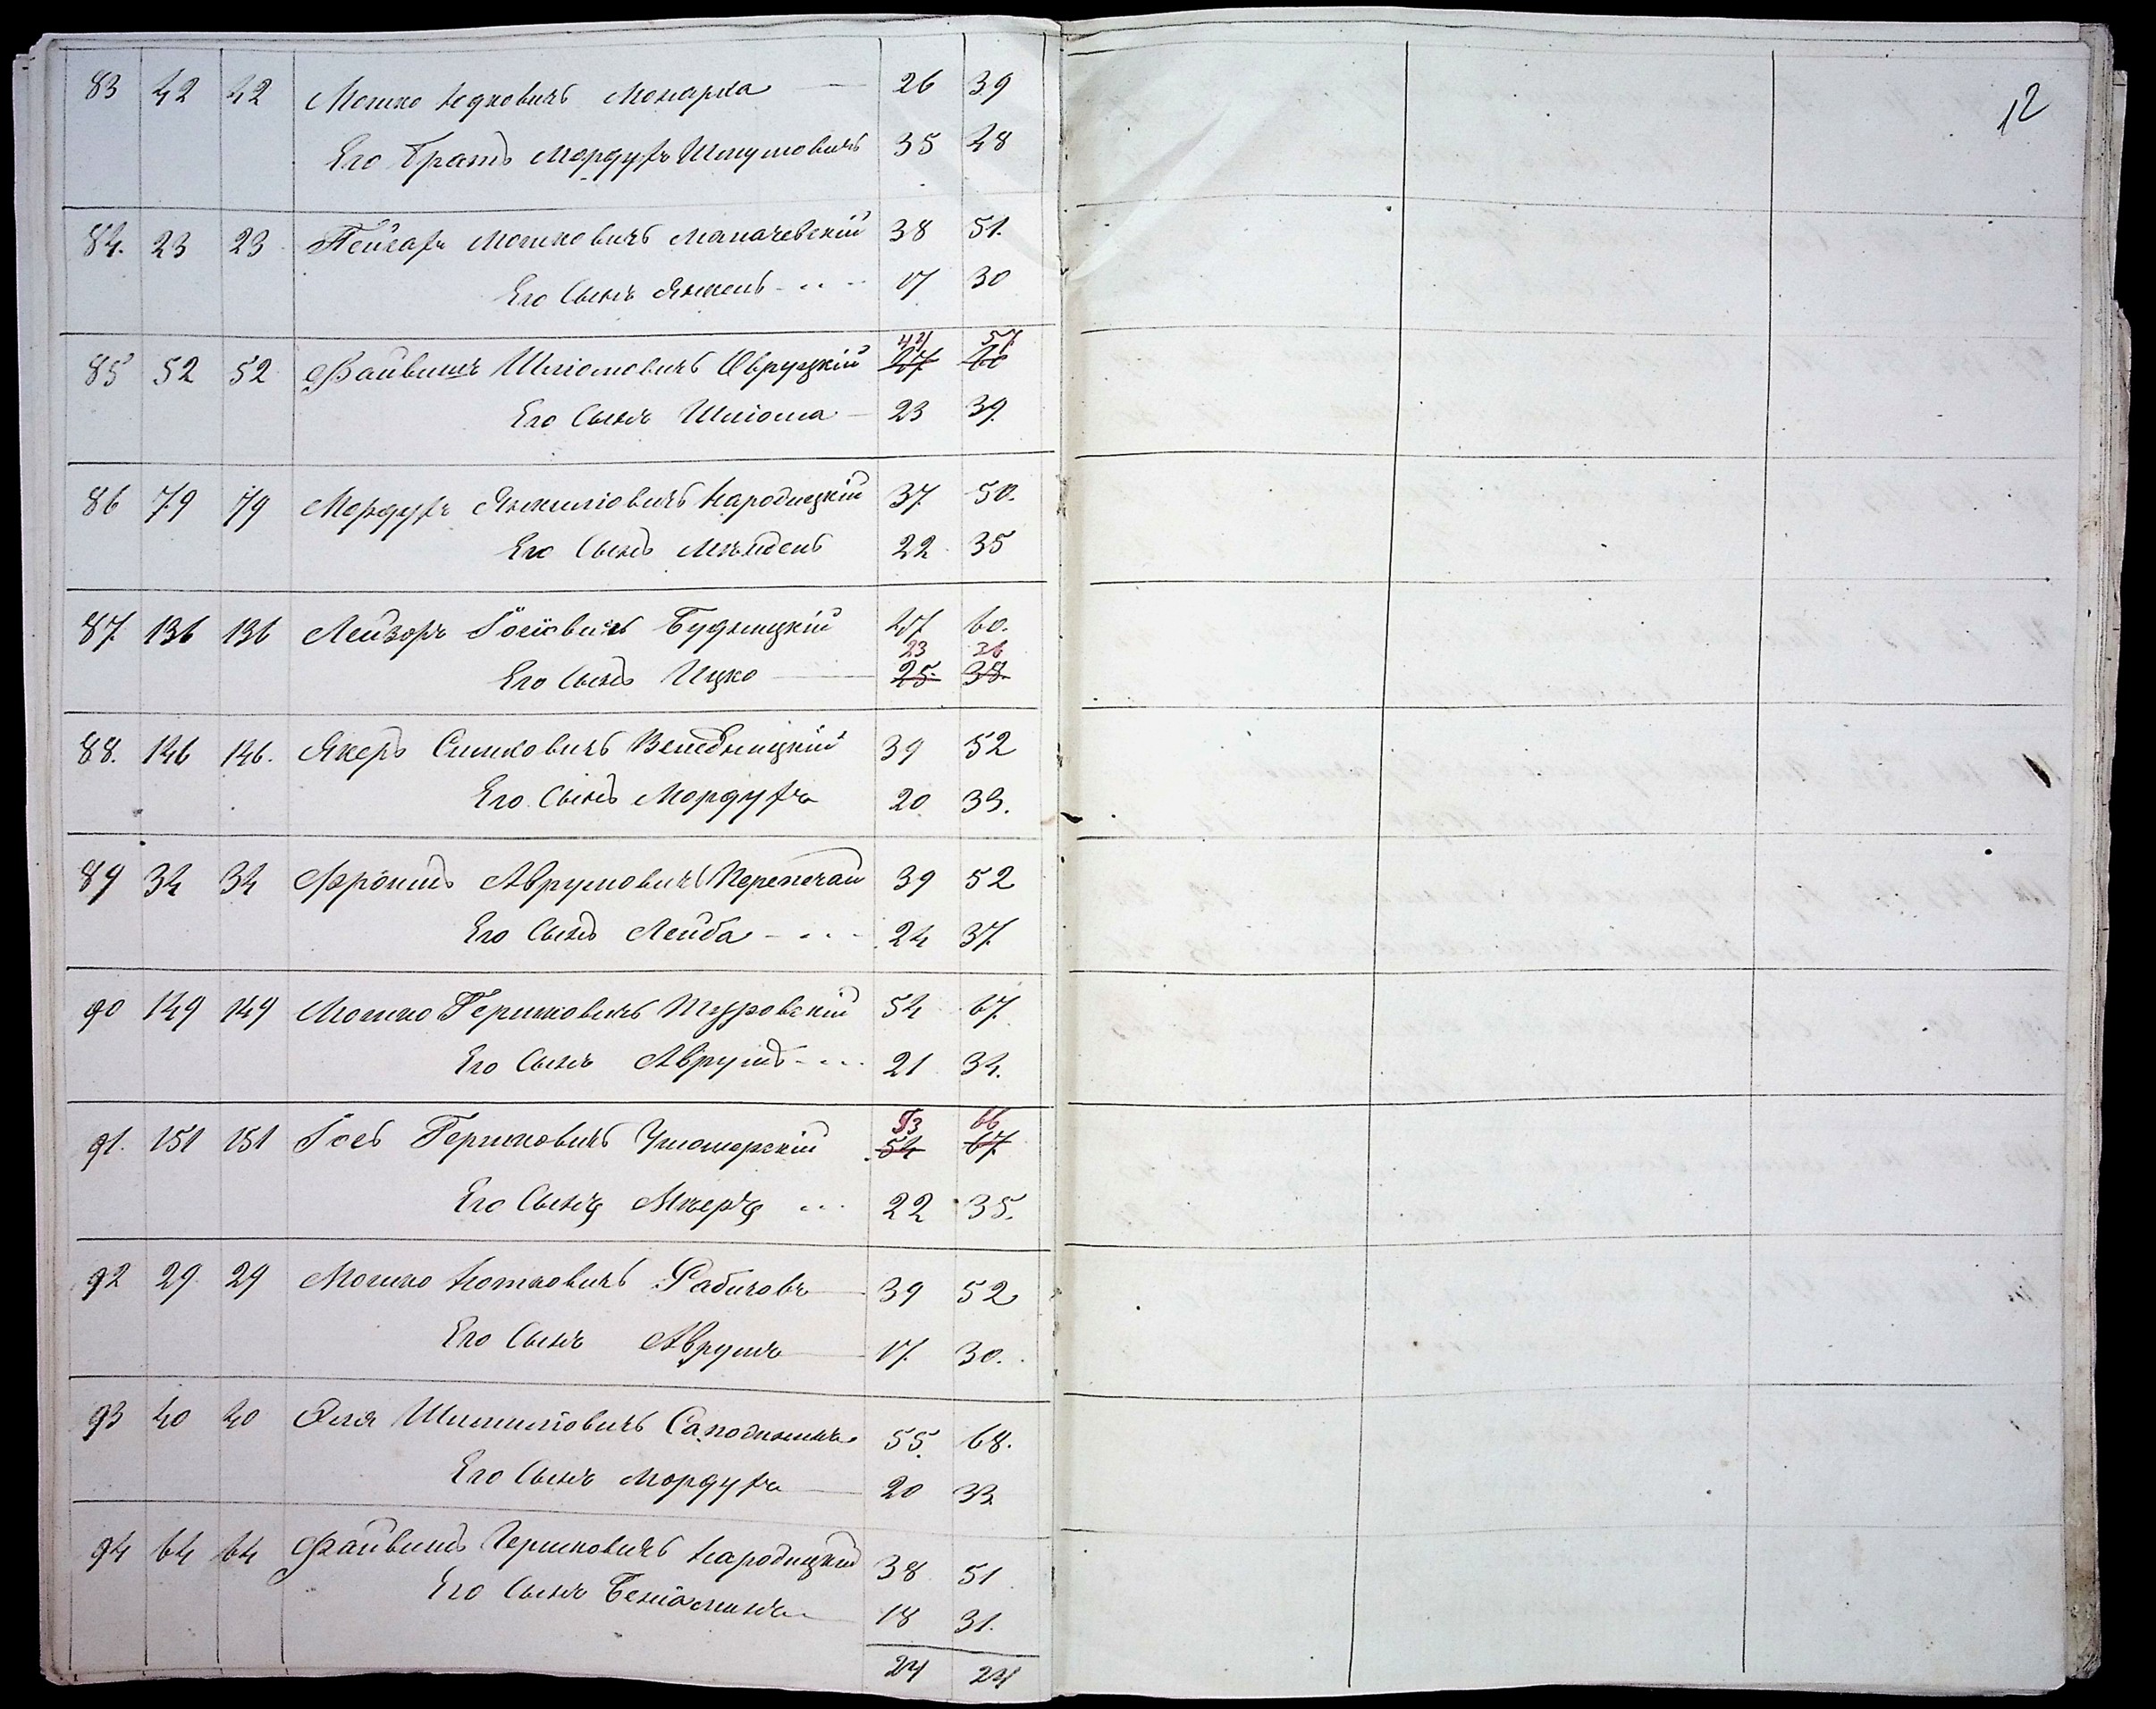 12
83 42 42 Мошко Іедковичъ Монарха 26 39
Его братъ Мордухъ Шмуловичъ 35 48
84. 23 23 Пейсахъ Мошковичъ Малачевскій 38 51.
Его Сынъ Янкель 17 30
44 57.
85 52 52 Файвишъ Шліомовичъ Овруцкій 47 60
Его Сынъ Шліома 23 39.
86 79 79 Мордухъ Янкиліовичъ Народицкій 37. 50.
Его Сынъ Мендель 22 35
87. 136 136 Лейзоръ Іосіовичъ Будницкій 47 60.
23 36
Его Сынъ Ицко 25. 38.
88. 146 146. Якеръ Симховичъ Веледницкій 39 52
Его Сынъ Мордухъ 20 33.
89 34 34 Фроимъ Аврумовичъ Перепечай 39 52
Его Сынъ Лейба 24 37.
90 149 149 Мошко Гершковичъ Туровскій 54 67.
Его Сынъ Аврумъ 21 34.
53 66
91. 151 151 Іось Гершковичъ Ушомерскій 54 67.
Его Сынъ 22 35.
92 29. 29 Мошко Мотковичъ Рабичовъ 39 52
Его Сынъ Аврумъ 17. 30.
93 40 40 Эля Шимиліовичъ Сапожникъ 55. 68.
Его Сынъ Мордухъ 20 33.
94 64 64 Файвишъ Гершковичъ Народицкій 38 51
Его Сынъ Беніаминъ 18 31.
24 24